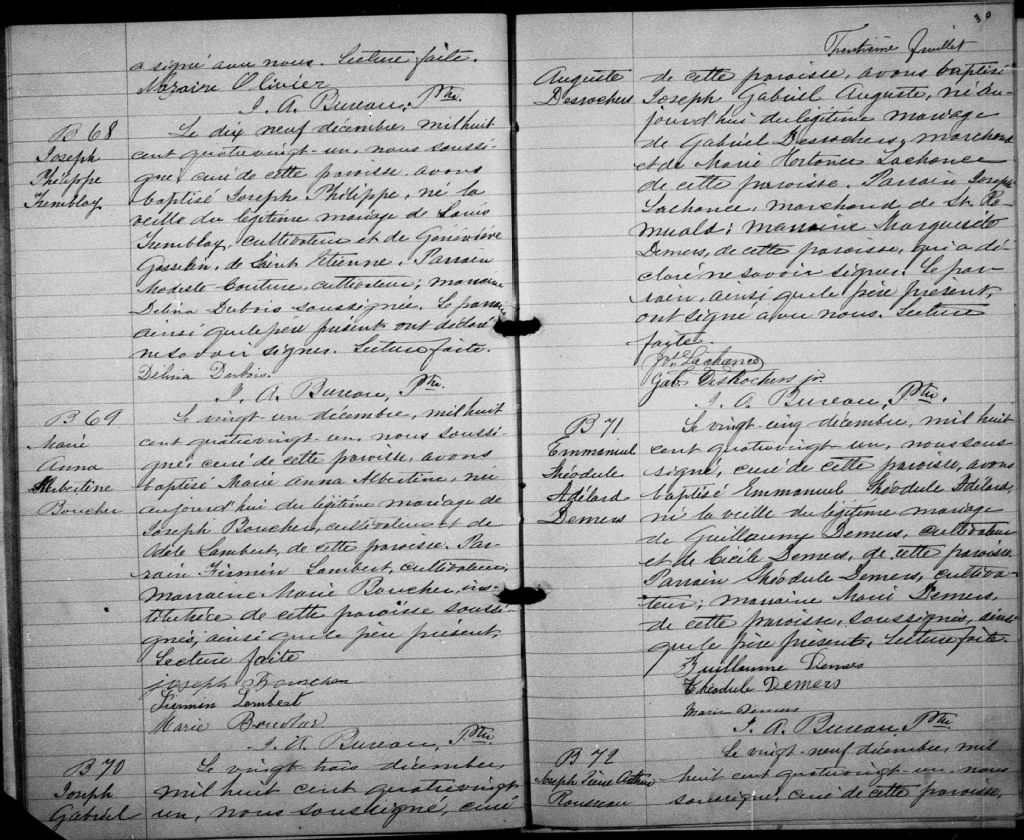 a signé avec nous. Lecture faite.
Nazaire Olivier
J. A. Bureau, Ptre.
B 68
Joseph
Philippe
Tremblay
Le dix neuf décembre, mil huit
cent quatrevingt-un, nous soussi-
gné, curé de cette paroisse, avons
baptisé Joseph Philippe, né la
veille du légitime mariage de Louis
Tremblay, cultivateur et de Géneviève
Gosselin, de Saint Etienne. Parrain
Modeste Couture, cultivateur; marraine
Délina Dubois soussignée. Le parrain
ainsi que le père présent ont déclaré
ne savoir signer. Lecture faite.
Délina Dubois
J. A. Bureau, Ptre.
B 69
Marie
Anna
Albertine
Boucher
Le vingt-un décembre, mil huit
cent quatrevingt-un, nous soussi-
gné, curé de cette paroisse, avons
baptisé Marie Anna Albertine, née
aujourd'hui du légitime mariage de
Joseph Boucher, cultivateur et de
Adèle Lambert, de cette paroisse. Par-
rain Firmin Lambert, cultivateur,
marraine Marie Boucher, ins-
titutrice de cette paroisse soussi-
gnés, ainsi que le père présent.
Lecture faite
Joseph Boucher
Firmin Lambert
Marie Boucher
J. A. Bureau, Ptre.
B 70
Joseph
Gabriel
Le vingt-trois décembre,
mil huit cent quatrevingt-
un, nous soussigné, curé
30
Trentième feuillet
Auguste
Desrochers
de cette paroisse, avons baptisé
Joseph Gabriel Auguste, né au-
jourd'hui du légitime mariage
de Gabriel Desrochers, marchand
et de Marie Hortance Lachance
de cette paroisse. Parrain Joseph
Lachance, marchand de St. Ro-
muald; marraine Marguerite
Demers, de cette paroisse, qui a dé-
claré ne savoir signer. Le par-
rain, ainsi que le père présent,
ont signé avec nous. Lecture
faite.
Jos. Lachance
Gab. DesRochers jr.
J. A. Bureau, Ptre.
B 71
Emmanuel
Théodule
Adélard
Demers
Le vingt-cinq décembre, mil huit
cent quatrevingt un, nous sous
signé, curé de cette paroisse, avons
baptisé Emmanuel Théodule Adélard,
né la veille du légitime mariage
de Guillaume Demers, cultivateur
et de Cécile Demers, de cette paroisse.
Parrain Théodule Demers, cultiva-
teur; marraine Marie Demers,
de cette paroisse, soussignés, ainsi
que le père présent. Lecture faite.
Guillaume Demers
Théodule Demers
Marie Demers
J. A. Bureau, Ptre.
B 72
Joseph Pierre Arthur
Rousseau
Le vingt-neuf décembre, mil
huit cent quatrevingt-un, nous
soussigné, curé de cette paroisse,